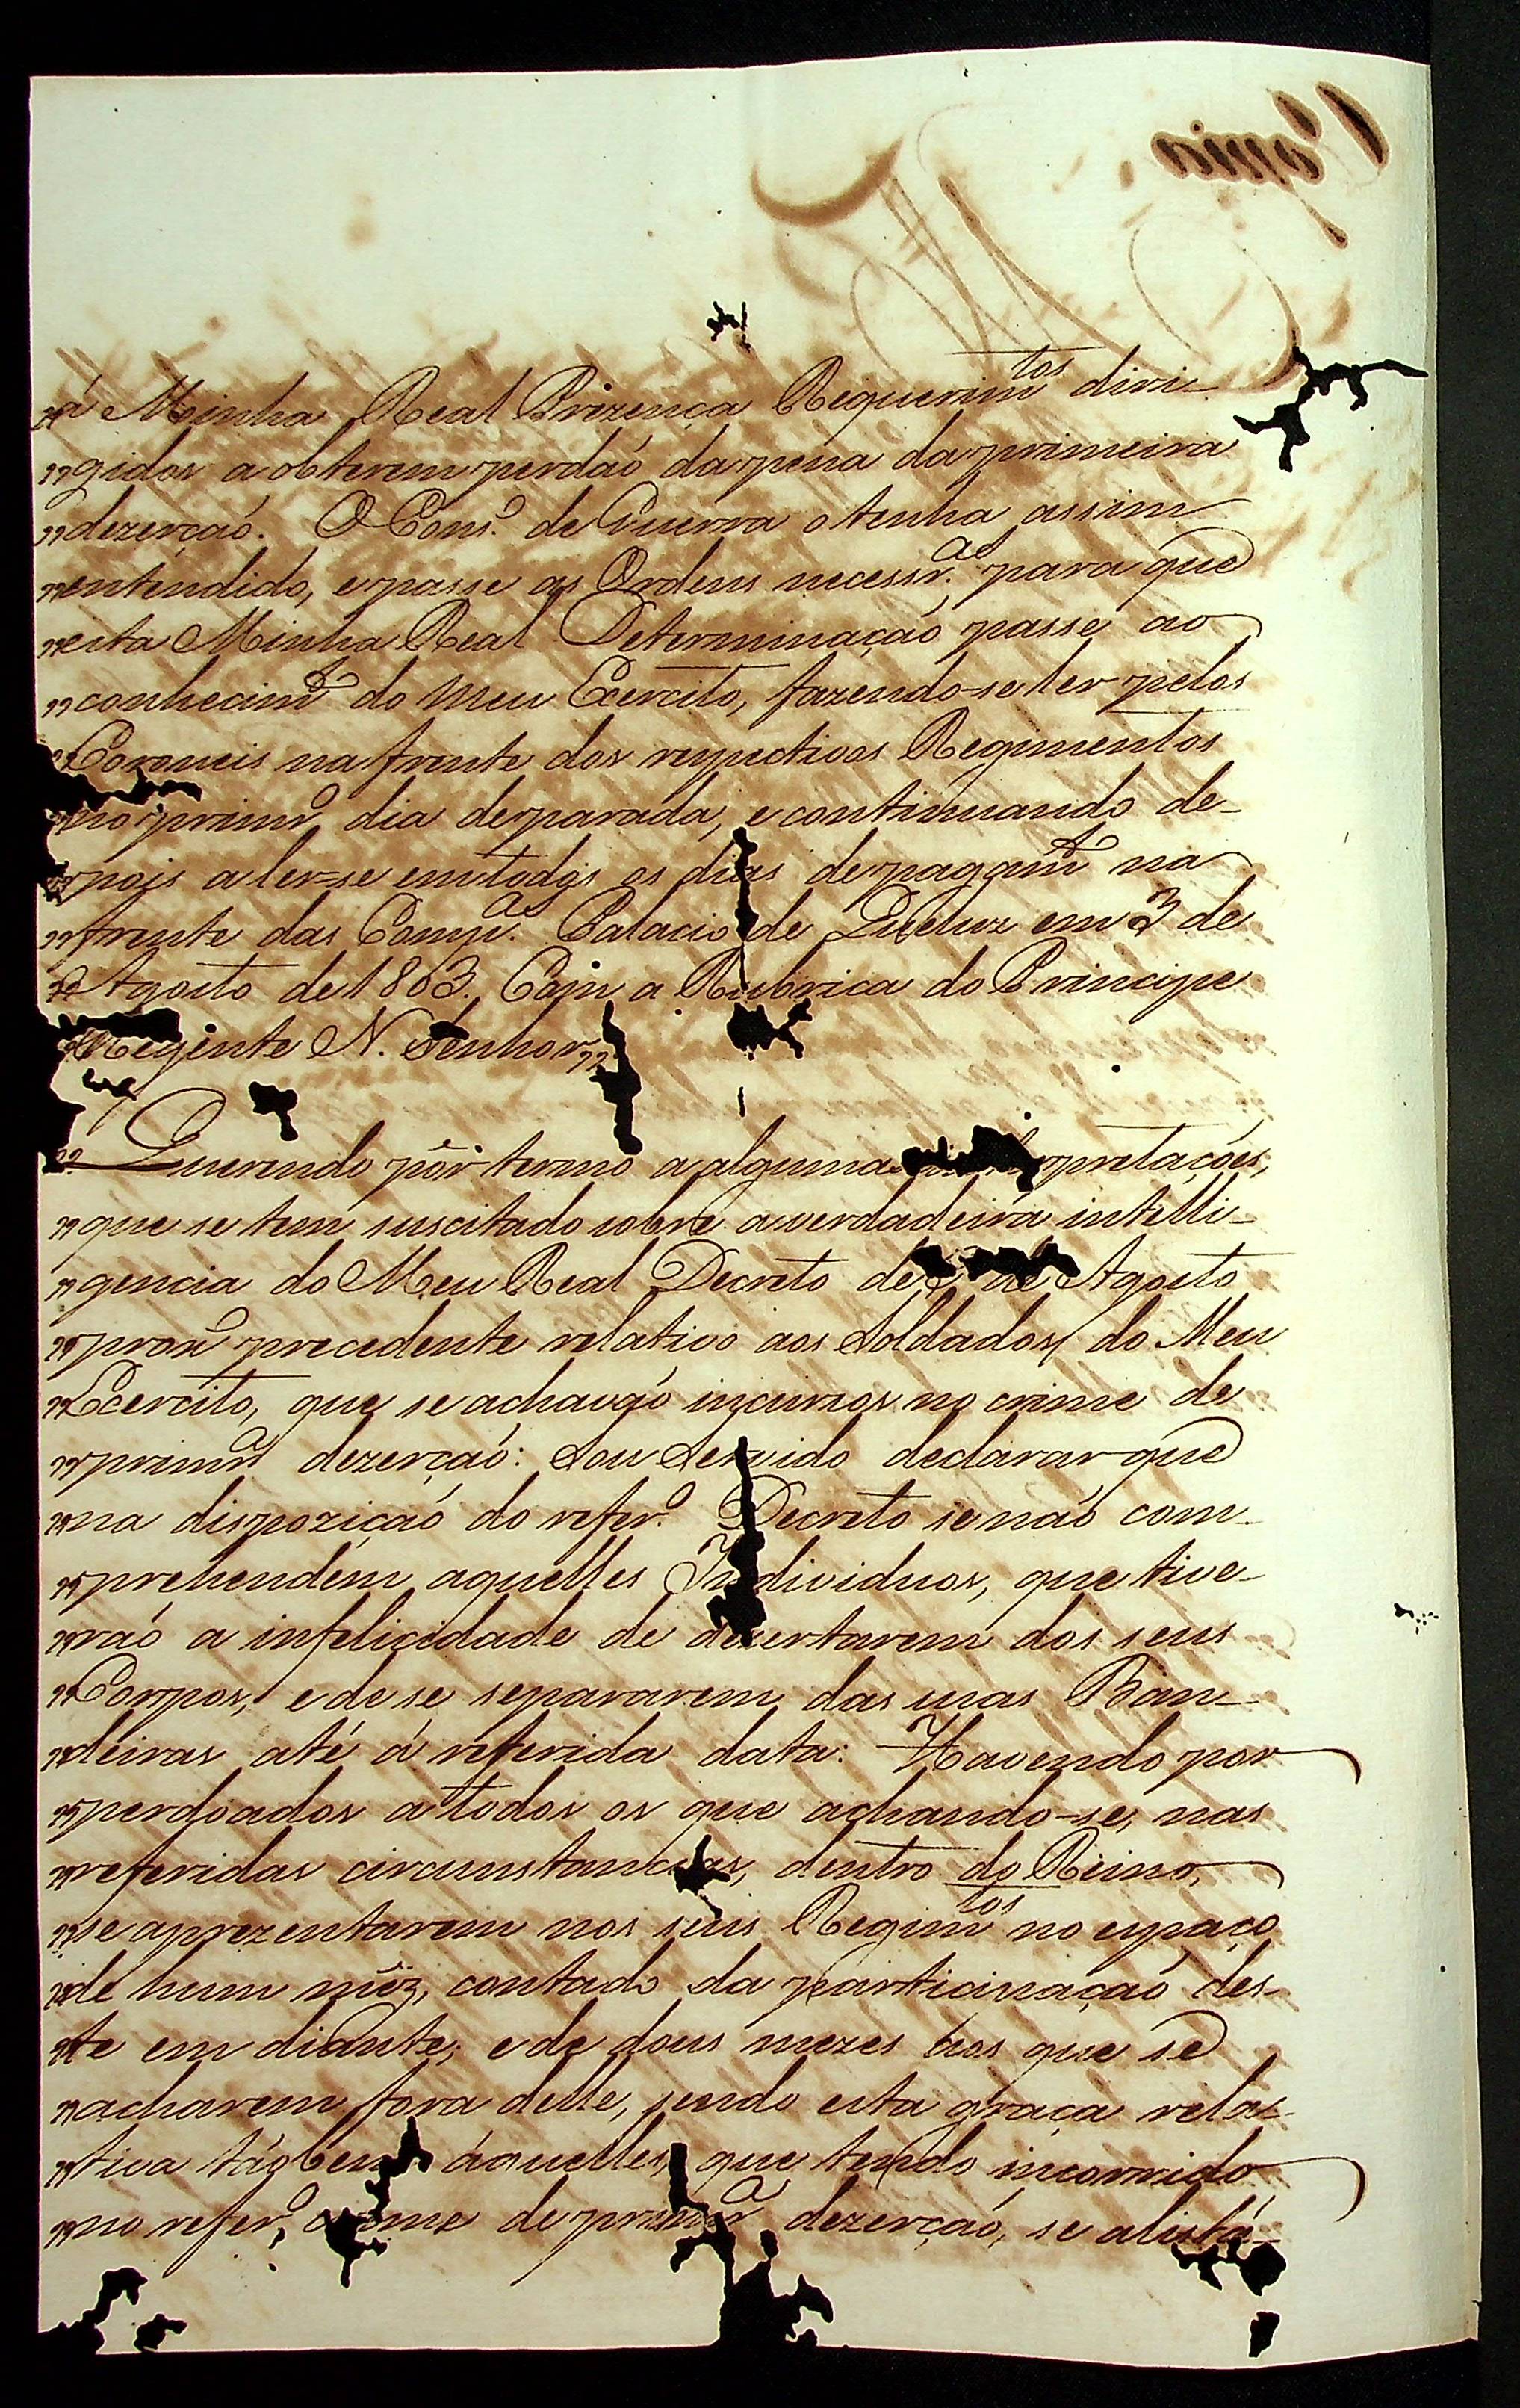 "á Minha Real Prezença Requerim.tos diri-
"gidos a obterem perdaõ da pena da primeira
"dezerçaõ. O Cons.o de Guerra o tenha assim
"entendido, e passe as Ordens necessr.as para que
"esta Minha Real Determinaçaõ passe ao
"conhecim.to do Meu Exercito, fazendo-se ler pelos
"Coroneis na frente dos respectivos Regimentos
"no primr.o dia de parada, e continuando de-
"pois a ler-se em todos os dias de pagam.to na
"frente das Comp.as Palacio de Queluz em 3 de
"Agosto de 1803. Com a Rubrica do Principe
"Regente N. Senhor,,
" Querendo pôr termo a algumas interpretações,
"que se tem suscitado sobre a verdadeira intelli-
"gencia do Meu Real Decreto de de Agosto
"prox.o precedente relativo aos Soldados do Meu
"Exercito, que se achavaõ incursos no crime de
"primr.a dezerçaõ: Sou Servido declarar que
"na dispoziçaõ do refer.o Decreto se naõ com-
"prehendem aquelles Individuos, que tive-
"raõ a infelicidade de dezertarem dos seus
"Corpos, e de se separarem das suas Ban-
"deiras até á referida data: Havendo por
"perdoados a todos os que achando-se, nas
"referidas circumstancias, dentro do Reino,
"se aprezentarem nos seus Regim.tos no espaço
"de hum mêz, contado da participaçaõ des-
"te em diante, e de dous mezes aos que se
"acharem fora delle, sendo esta graça rela-
"tiva tãobem áquelles, que tendo incorrido
"no refer.o crime de primr.a dezerçaõ, se alistá-
Copia.